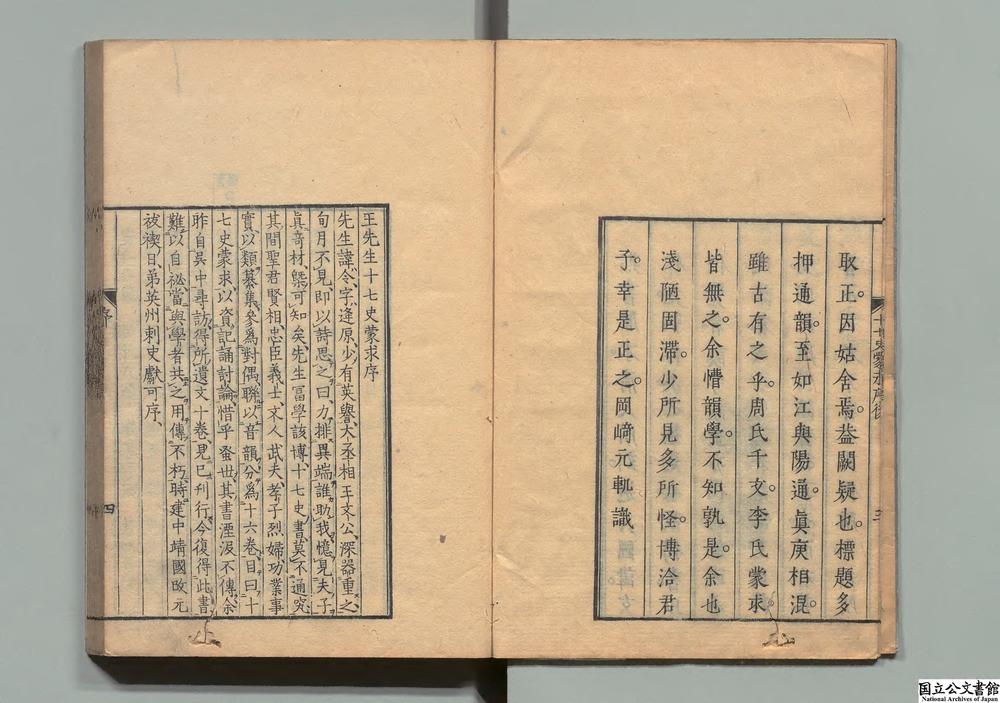 取正。因姑舍焉。益闕疑也。標題多
押通韻。至如江與陽通。眞庚相混。
雖古有之乎。周氏千文。李氏蒙求。
皆無之。余懵韻學。不知孰是。余也
淺陋固滯。少所見多所怪。博洽君
子。幸是正之。岡﨑元軌識
王先生十七史蒙求序
先生諱令、字逢原、少有英譽大丞相王文公、深器重之、
旬月不見、即以詩思之曰、力排異端誰助我、憶見夫子
眞奇材、槩可知矣先生冨學該博、十七史書莫不通究
其間聖君賢相、忠臣義士、文人武夫、孝子烈婦功業事
實以類纂集、參爲對偶、聯以音韻、分爲十六卷、目曰、十
七史蒙求、以資記誦討論、惜乎蚤世、其書湮沒不傳、余
昨自吳中尋訪得所遺文十卷、見已刊行、今復得此書
難以自祕、當與學者共之、用傳不朽、時建中靖國改元
祓禊日、弟英州刺史獻可序、
四
国立公文書館
National Archives of Japan